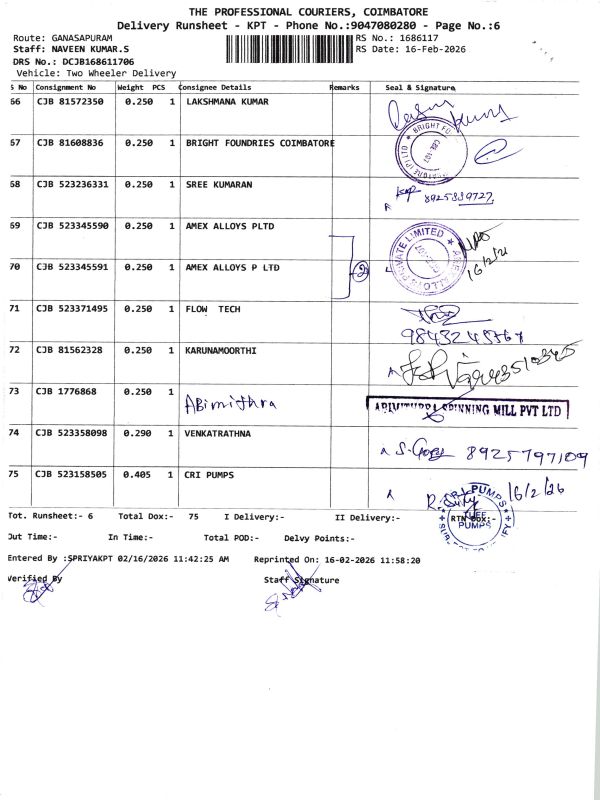 THE PROFESSIONAL COURIERS, COIMBATORE
Delivery Runsheet - KPT - Phone No.:9047080280 - Page No.:6
Route: GANASAPURAM
RS No.: 1686117
Staff: NAVEEN KUMAR.S
RS Date: 16-Feb-2026
DRS No.: DCJB168611706
Vehicle: Two Wheeler Delivery
S No Consignment No Weight PCS Consignee Details Remarks Seal & Signature
66 CJB 81572350 0.250 1 LAKSHMANA KUMAR
67 CJB 81608836 0.250 1 BRIGHT FOUNDRIES COIMBATORE
68 CJB 523236331 0.250 1 SREE KUMARAN 8925839727
69 CJB 523345590 0.250 1 AMEX ALLOYS PLTD
70 CJB 523345591 0.250 1 AMEX ALLOYS P LTD 2 16/2/26
71 CJB 523371495 0.250 1 FLOW TECH
72 CJB 81562328 0.250 1 KARUNAMOORTHI
73 CJB 1776868 0.250 1 Abimithra SPINNING MILL PVT LTD
74 CJB 523358098 0.290 1 VENKATRATHNA 8925797109
75 CJB 523158505 0.405 1 CRI PUMPS 16/2/26
PUMPS
Tot. Runsheet:- 6 Total Dox:- 75 I Delivery:- II Delivery:- RTN Dox:-
Out Time:- In Time:- Total POD:- Delvy Points:-
Entered By :SPRIYAKPT 02/16/2026 11:42:25 AM Reprinted On: 16-02-2026 11:58:20
Verified By Staff Signature